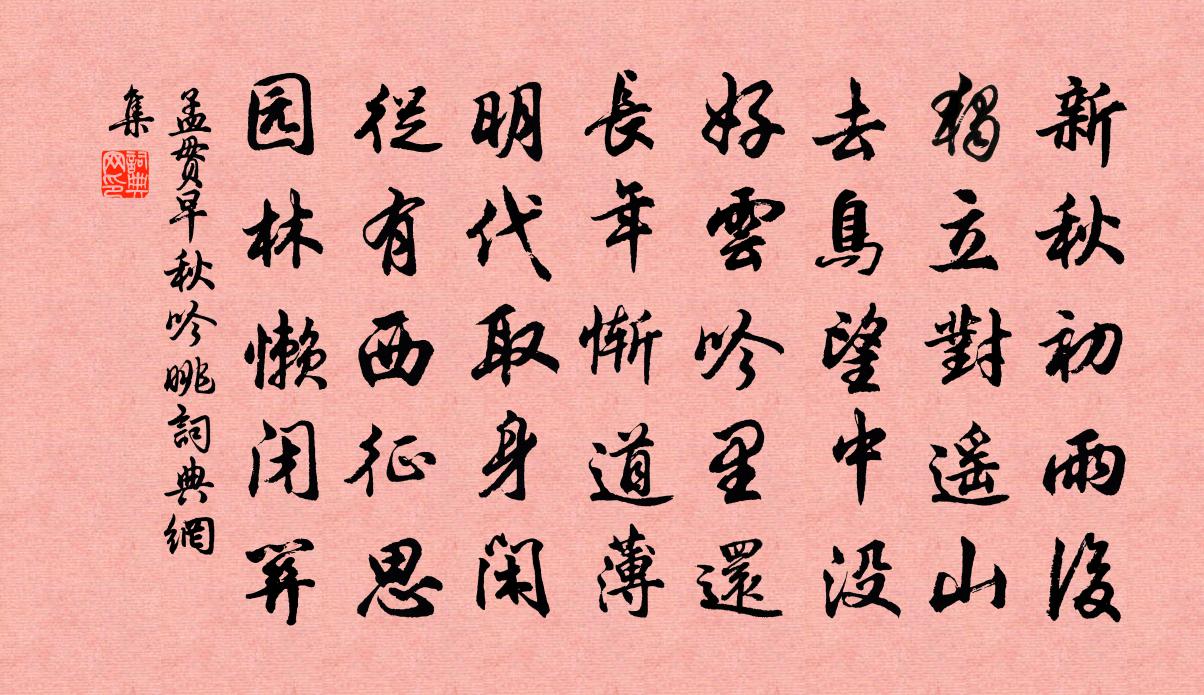 新秋初雨後
獨立對遙山
去鳥望中没
好雲吟里還
長年慚道薄
明代取身闲
從有西征思
园林懒闭關
孟贯早秋吟眺詞典網
集
詞典网印